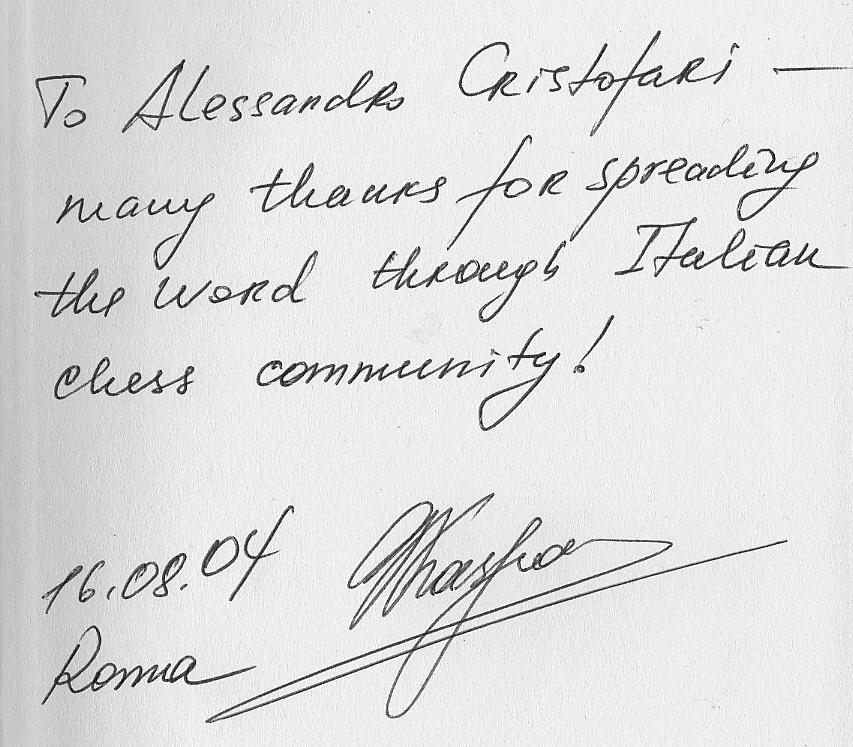 To Alessandro Cristofari —
many thanks for spreading
the word through Italian
chess community!
16.08.04
Roma